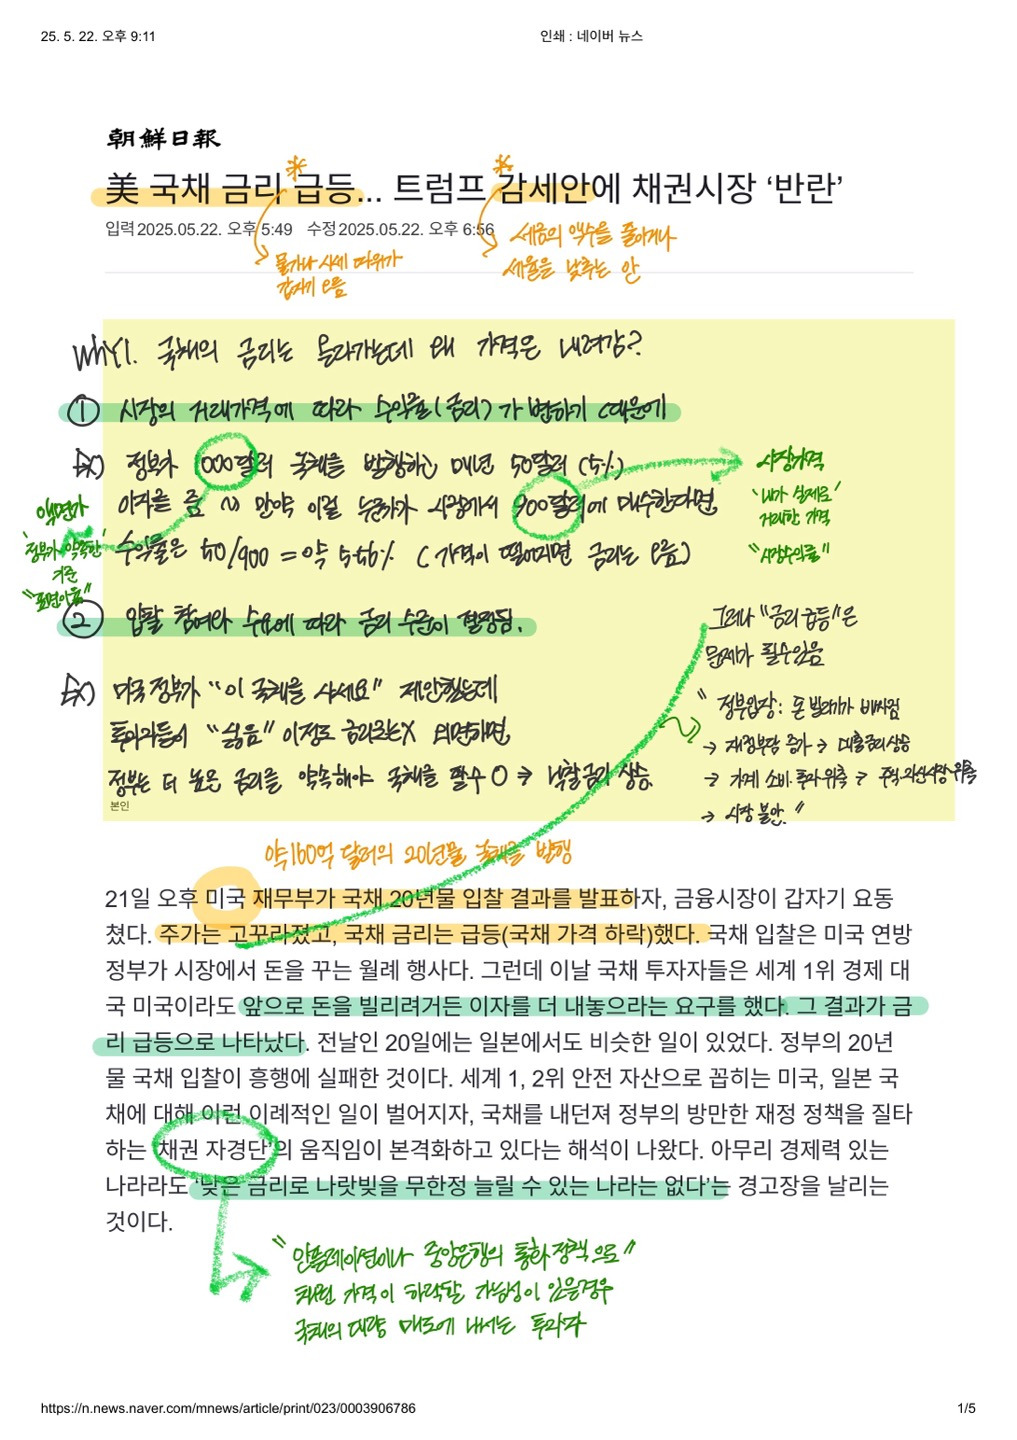 25. 5. 22. 오후 9:11
인쇄 : 네이버 뉴스
朝鮮日報
美 국채 금리 급등... 트럼프 감세안에 채권시장 ‘반란’
입력2025.05.22. 오후 5:49 수정2025.05.22. 오후 6:56
물가나 시세 따위가
갑자기 오름
세금의 액수를 줄이거나
세율을 낮추는 안
Why1. 국채의 금리는 올라가는데 왜 가격은 내려감?
① 시장의 거래가격에 따라 수익률(금리)가 변하기 때문에
Ex) 정부가 1000달러 국채를 발행하면 매년 50달러 (5%)
이자를 줌 ~> 만약 이걸 누군가 시장에서 900달러에 매수한다면
수익률은 50/900 = 약 5.56% (가격이 떨어지면 금리는 오름)
액면가
"정부가 약속한"
기준
"표면이율"
시장가격
'내가 실제로'
거래한 가격
"시장수익률"
② 입찰 참여와 수요에 따라 금리 수준이 결정됨.
Ex) 미국 정부가 "이 국채를 사세요" 제안했는데
투자자들이 "싫음" 이정도 금리로는X 외면하면
정부는 더 높은 금리를 약속해야 국채를 팔수 O → 낙찰금리 상승
본인
그러나 "금리 급등"은
문제가 될수있음
" 정부입장: 돈 빌리기가 비싸짐
→ 재정부담 증가 → 대출금리상승
→ 가계 소비·투자 위축 → 주식·자산시장 위축
→ 시장 불안. "
약 160억 달러의 20년물 국채를 발행
21일 오후 미국 재무부가 국채 20년물 입찰 결과를 발표하자, 금융시장이 갑자기 요동
쳤다. 주가는 고꾸라졌고, 국채 금리는 급등(국채 가격 하락)했다. 국채 입찰은 미국 연방
정부가 시장에서 돈을 꾸는 월례 행사다. 그런데 이날 국채 투자자들은 세계 1위 경제 대
국 미국이라도 앞으로 돈을 빌리려거든 이자를 더 내놓으라는 요구를 했다. 그 결과가 금
리 급등으로 나타났다. 전날인 20일에는 일본에서도 비슷한 일이 있었다. 정부의 20년
물 국채 입찰이 흥행에 실패한 것이다. 세계 1, 2위 안전 자산으로 꼽히는 미국, 일본 국
채에 대해 이런 이례적인 일이 벌어지자, 국채를 내던져 정부의 방만한 재정 정책을 질타
하는 ‘채권 자경단’의 움직임이 본격화하고 있다는 해석이 나왔다. 아무리 경제력 있는
나라라도 ‘낮은 금리로 나랏빚을 무한정 늘릴 수 있는 나라는 없다’는 경고장을 날리는
것이다.
" 인플레이션이나 중앙은행의 통화 정책으로 "
채권 가격이 하락할 가능성이 있을경우
국채의 대량 매도에 나서는 투자자
https://n.news.naver.com/mnews/article/print/023/0003906786
1/5